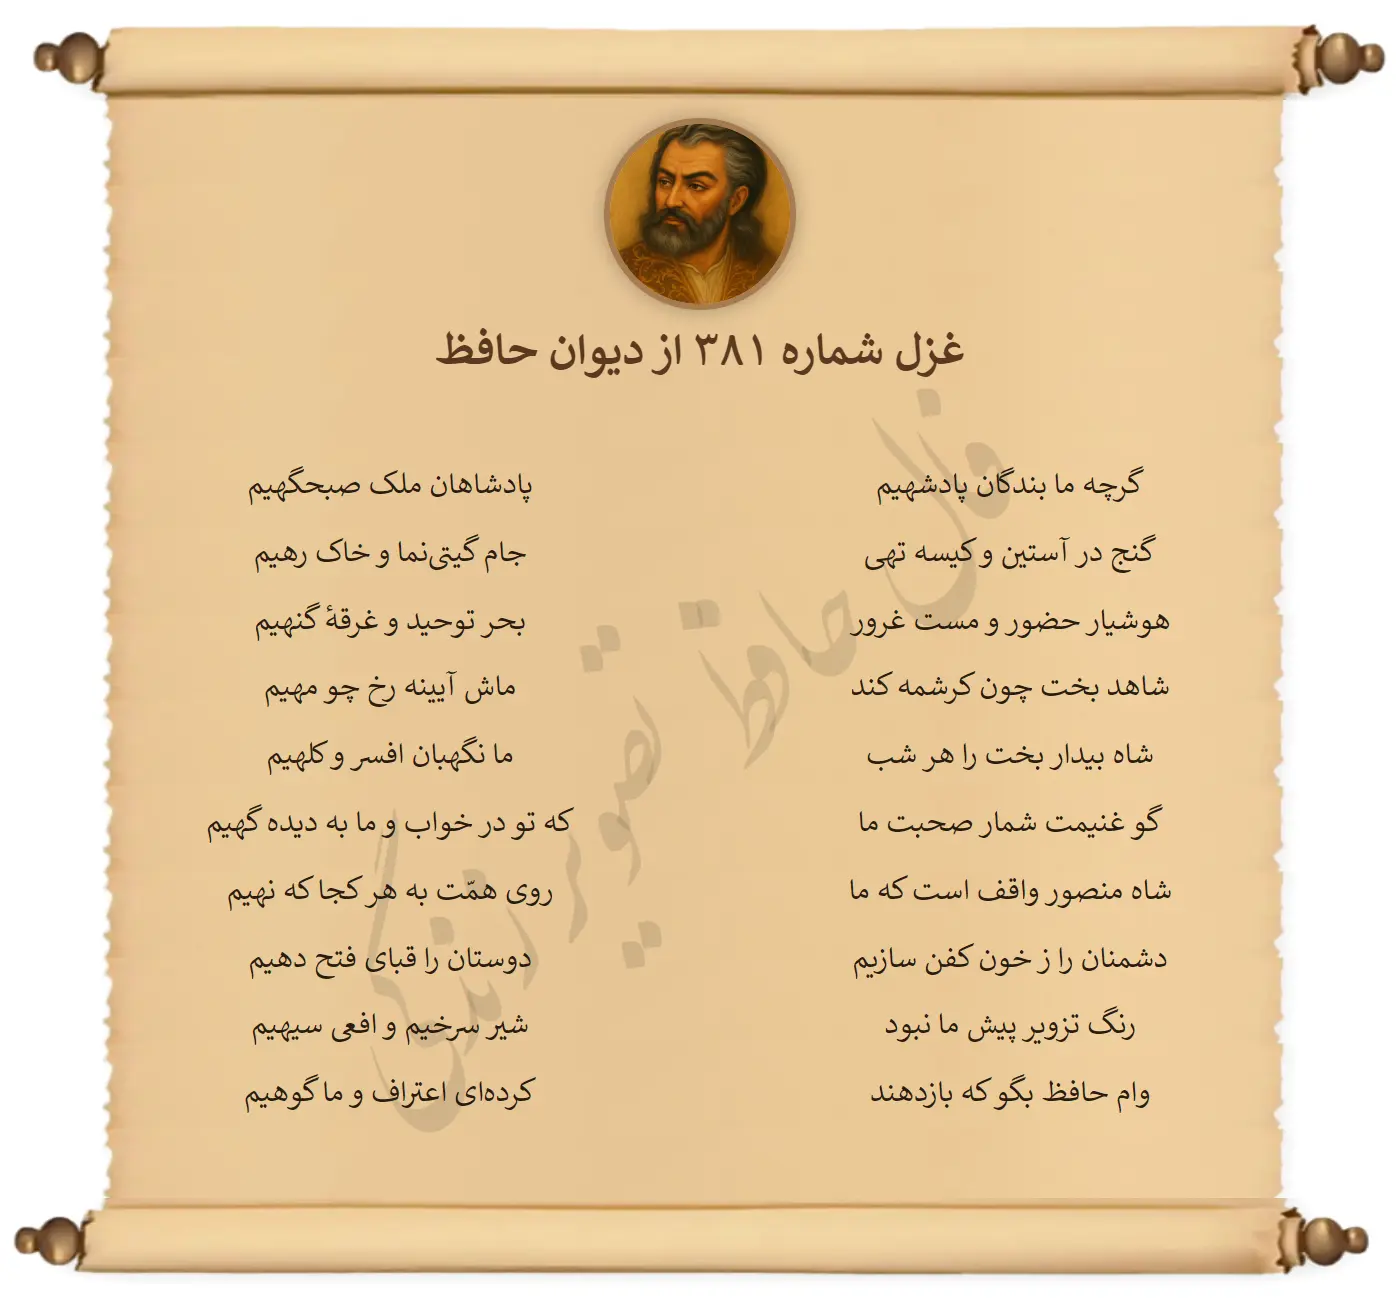 غزل شماره ۳۸۱ از دیوان حافظ
گرچه ما بندگان پادشهیم
پادشاهان ملک صبحگهیم
گنج در آستین و کیسه تهی
جام گیتی‌نما و خاک رهیم
هوشیار حضور و مست غرور
بحر توحید و غرقهٔ گنهیم
شاهد بخت چون کرشمه کند
ماش آیینه رخ چو مهیم
شاه بیدار بخت را هر شب
ما نگهبان افسر و کلهیم
گو غنیمت شمار صحبت ما
که تو در خواب و ما به دیده گهیم
شاه منصور واقف است که ما
روی همّت به هر کجا که نهیم
دشمنان را ز خون کفن سازیم
دوستان را قبای فتح دهیم
رنگ تزویر پیش ما نبود
شیر سرخیم و افعی سیهیم
وام حافظ بگو که بازدهند
کرده‌ای اعتراف و ما گوهیم
فال حافظ تصویر زندگی